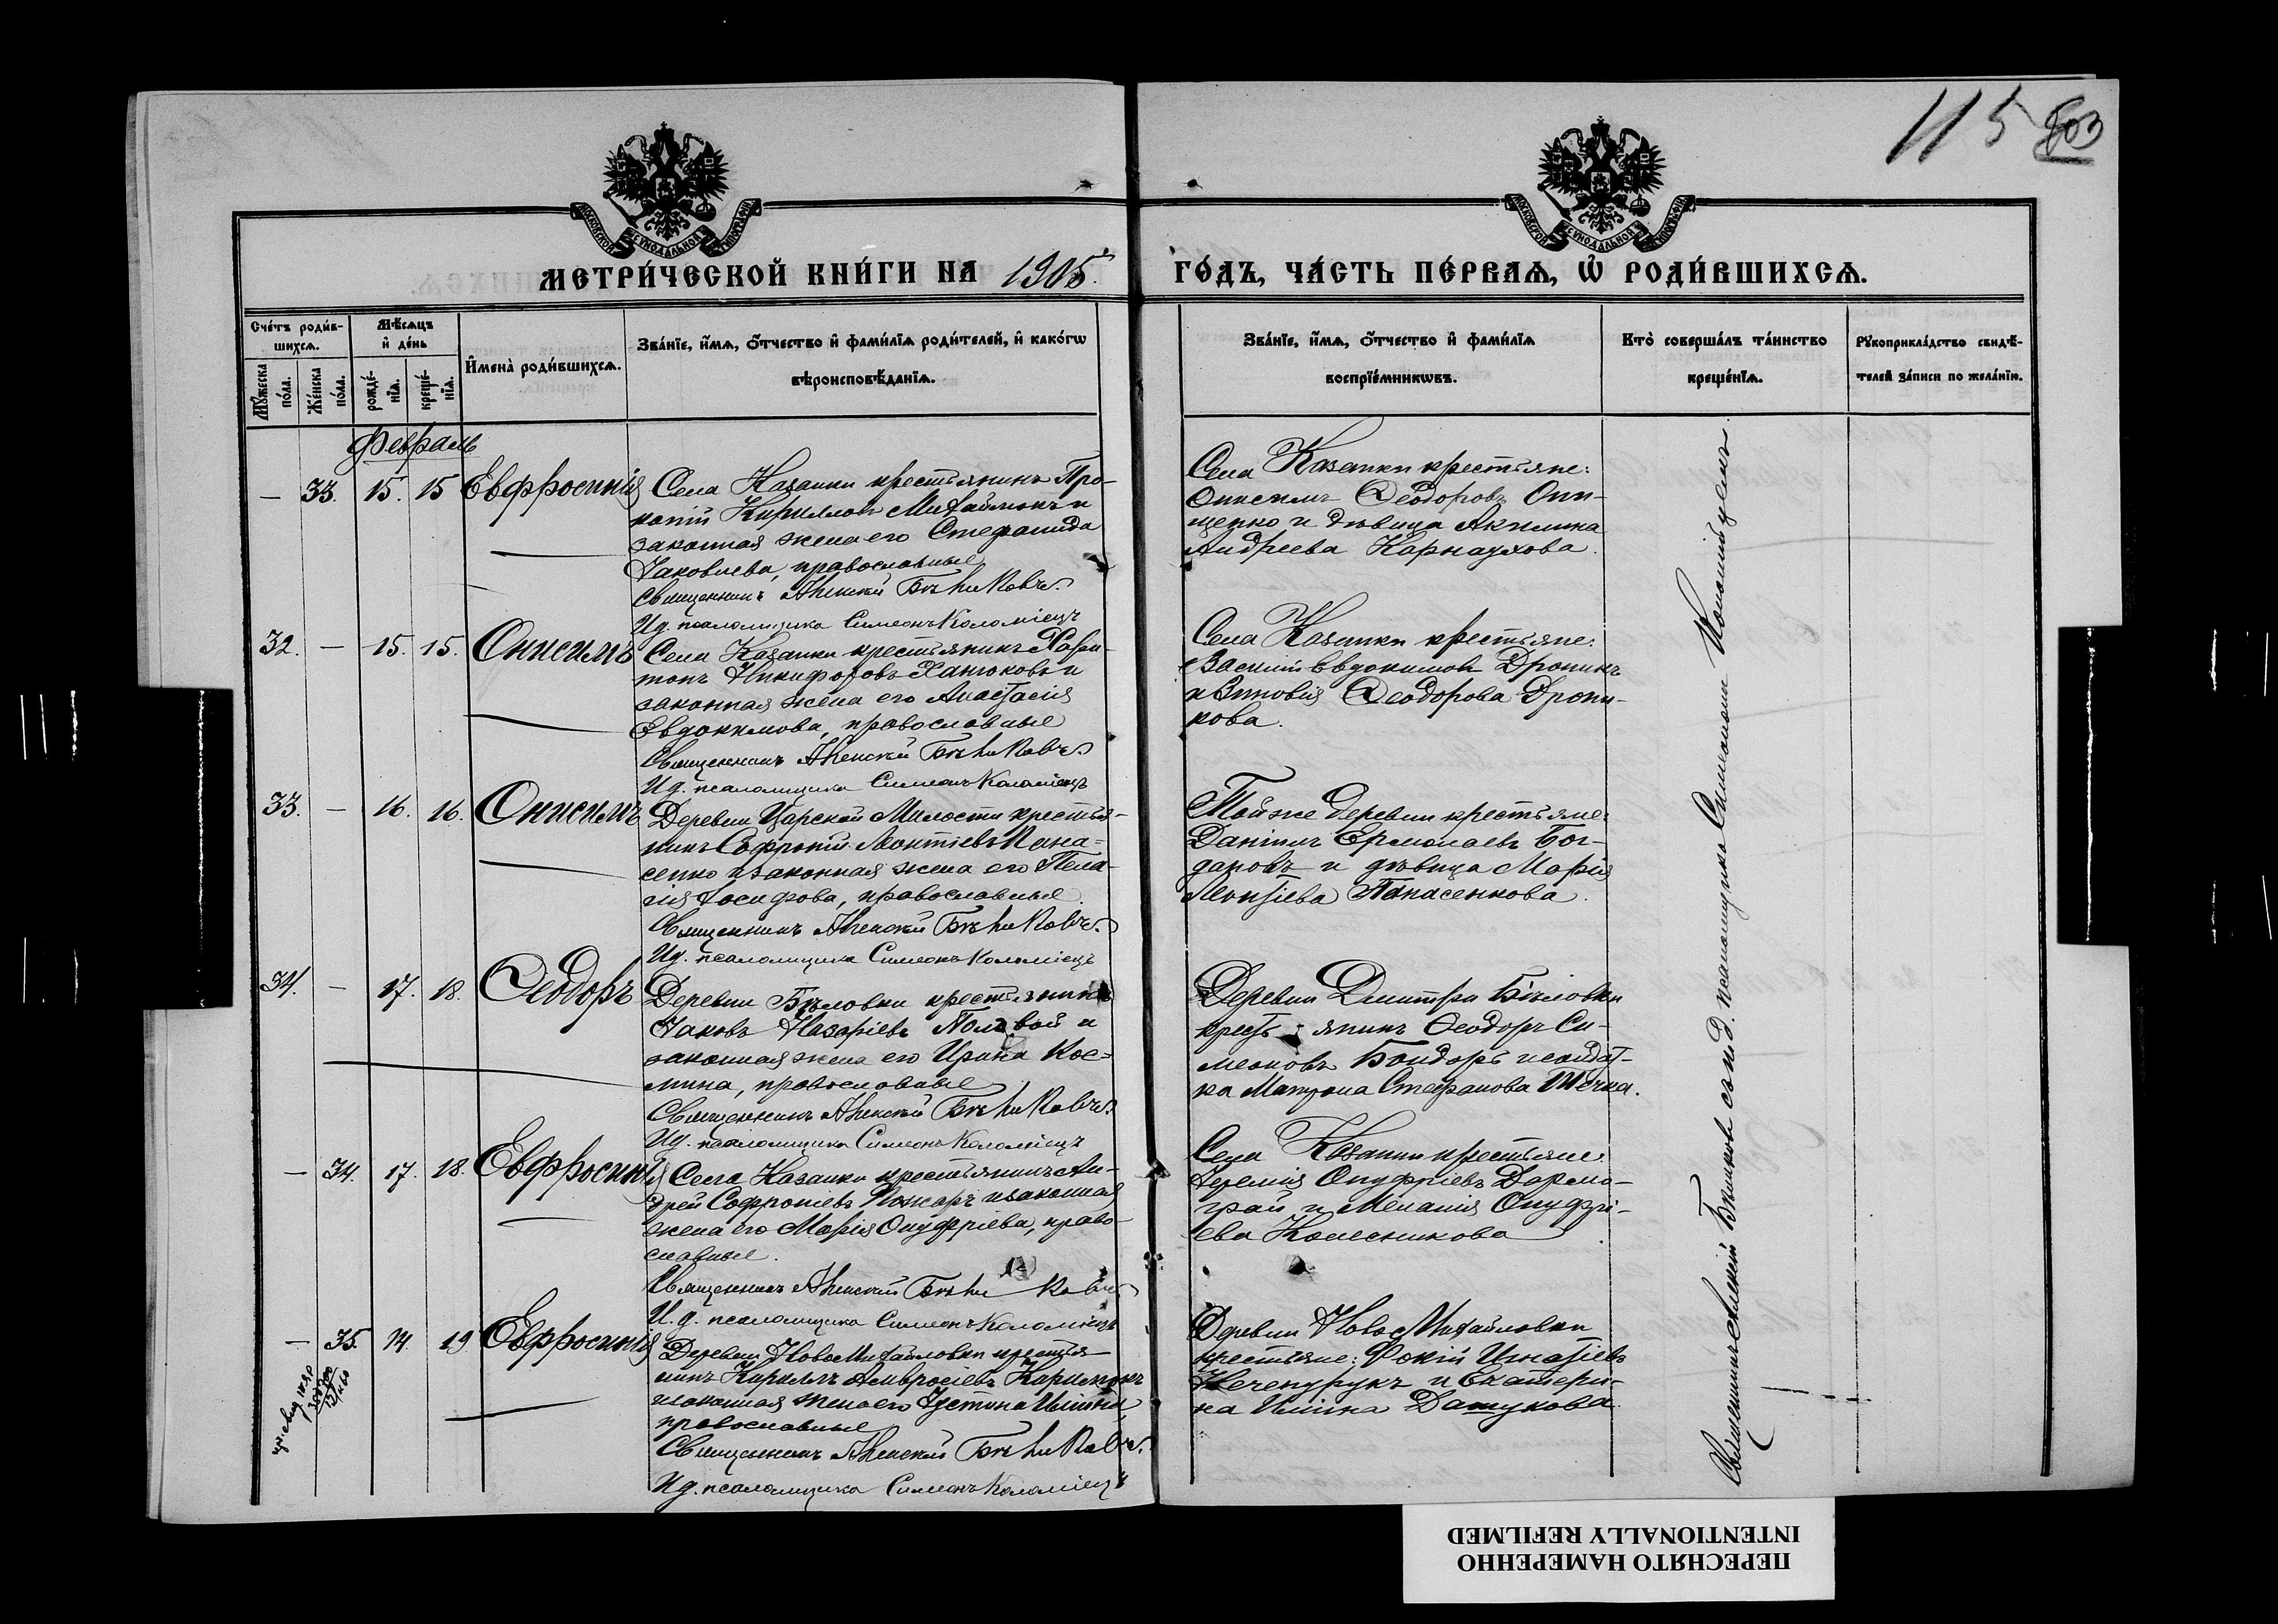 115 803
МОСКОВСКОЙ СѴНОДАЛЬНОЙ ТИПОГРАФІИ
МОСКОВСКОЙ СѴНОДАЛЬНОЙ ТИПОГРАФІИ
МЕТРИ́ЧЕСКОЙ КНИ́ГИ НА 1905. ГО́ДЪ, ЧА́СТЬ ПЕ́РВАѦ, Ѡ҆ РОДИ́ВШИХСѦ.
Сче́тъ роди́в-
шихсѧ.
Мꙋ́жеска по́ла.
Же́нска по́ла.
Мѣ́сѧцъ
и҆ де́нь
рожде́-
нїѧ.
креще́-
нїѧ.
И҆мена̀ роди́вшихсѧ.
Зва́нїе, и҆́мѧ, ѻ҆́тчество и҆ фами́лїѧ роди́телей, и҆ како́гѡ
вѣроисповѣ́данїѧ.
Зва́нїе, и҆́мѧ, ѻ҆́тчество и҆ фами́лїѧ
воспрїе́мникѡвъ.
Кто̀ соверша́лъ та́инство
креще́нїѧ.
Рꙋкоприкла́дство свидѣ́-
телей за́писи по жела́нїю.
Февраль
— 33. 15. 15 Евфросинія
Села Казанки крестьянинъ Про-
копій Кирилловъ Михайлюкъ и
законная жена его Стефанида
Іаковлева, православные
Священникъ
И.д. псаломщика Симеонъ Коломіецъ
Села Казанки крестьяне:
Онисимъ Ѳеодоровъ Они-
щенко и дѣвица Акилина
Андреева Карнаухова.
32. — 15. 15. Онисимъ
Села Казанки крестьянинъ Хари-
тонъ Никифоровъ Ханюковъ и
законная жена его Анастасія
Евдокимова, православные
Священникъ
И.д. псаломщика Симеонъ Коломіецъ
Села Казанки крестьяне:
Василій Евдокимовъ Дроникъ
и Зиновія Ѳеодорова Дрони-
кова.
33. — 16. 16. Онисимъ
Деревни Царской Милости крестья-
нинъ Софроній Леонтіевъ Пана-
сенко и законная жена его Пела-
гія Іосифова, православные.
Священникъ
И.д. псаломщика Симеонъ Коломіецъ
Той же деревни крестьяне:
Даніилъ Ермолаевъ Бог-
дановъ и дѣвица Марія
Леонтіева Панасенкова.
34. — 17. 18. Ѳеодоръ
Деревни Бѣловки крестьянинъ
Іаковъ Назаріевъ Полевой и
законная жена его Ирина Кос-
мина, православные
Священникъ
И.д. псаломщика Симеонъ Коломіецъ
Деревни Дмитра Бѣловки
крестьянинъ Ѳеодоръ Си-
меоновъ Бондарь и солдат-
ка Матрона Стефанова
— 34. 17. 18. Евфросинія
Села Казанки крестьянинъ Ан-
дрей Софроніевъ Пожаръ и законная
жена его Марія Онуфріева, право-
славные.
Священникъ
И.д. псаломщика Симеонъ Коломіецъ
Села Казанки крестьяне:
Іеремія Онуфріевъ Дарма-
грай и Меланія Онуфрі-
ева Колесникова
— 35. 14. 19 Евфросинія
Деревни Ново Михайловки крестья-
нинъ Кириллъ Амвросіевъ
и законная жена его Іустина Ильина,
православные
Священникъ
И.д. псаломщика Симеонъ Коломіецъ
Деревни Ново Михайловки
крестьяне: Фокій Игнатіевъ
Нечепурукъ и Екатери-
на Ильина Дацукова
Священникъ Алексій Бѣликовъ съ и.д. псаломщика Симеономъ Коломійцемъ.
ПЕРЕСНЯТО НАМЕРЕННО
INTENTIONALLY REFILMED